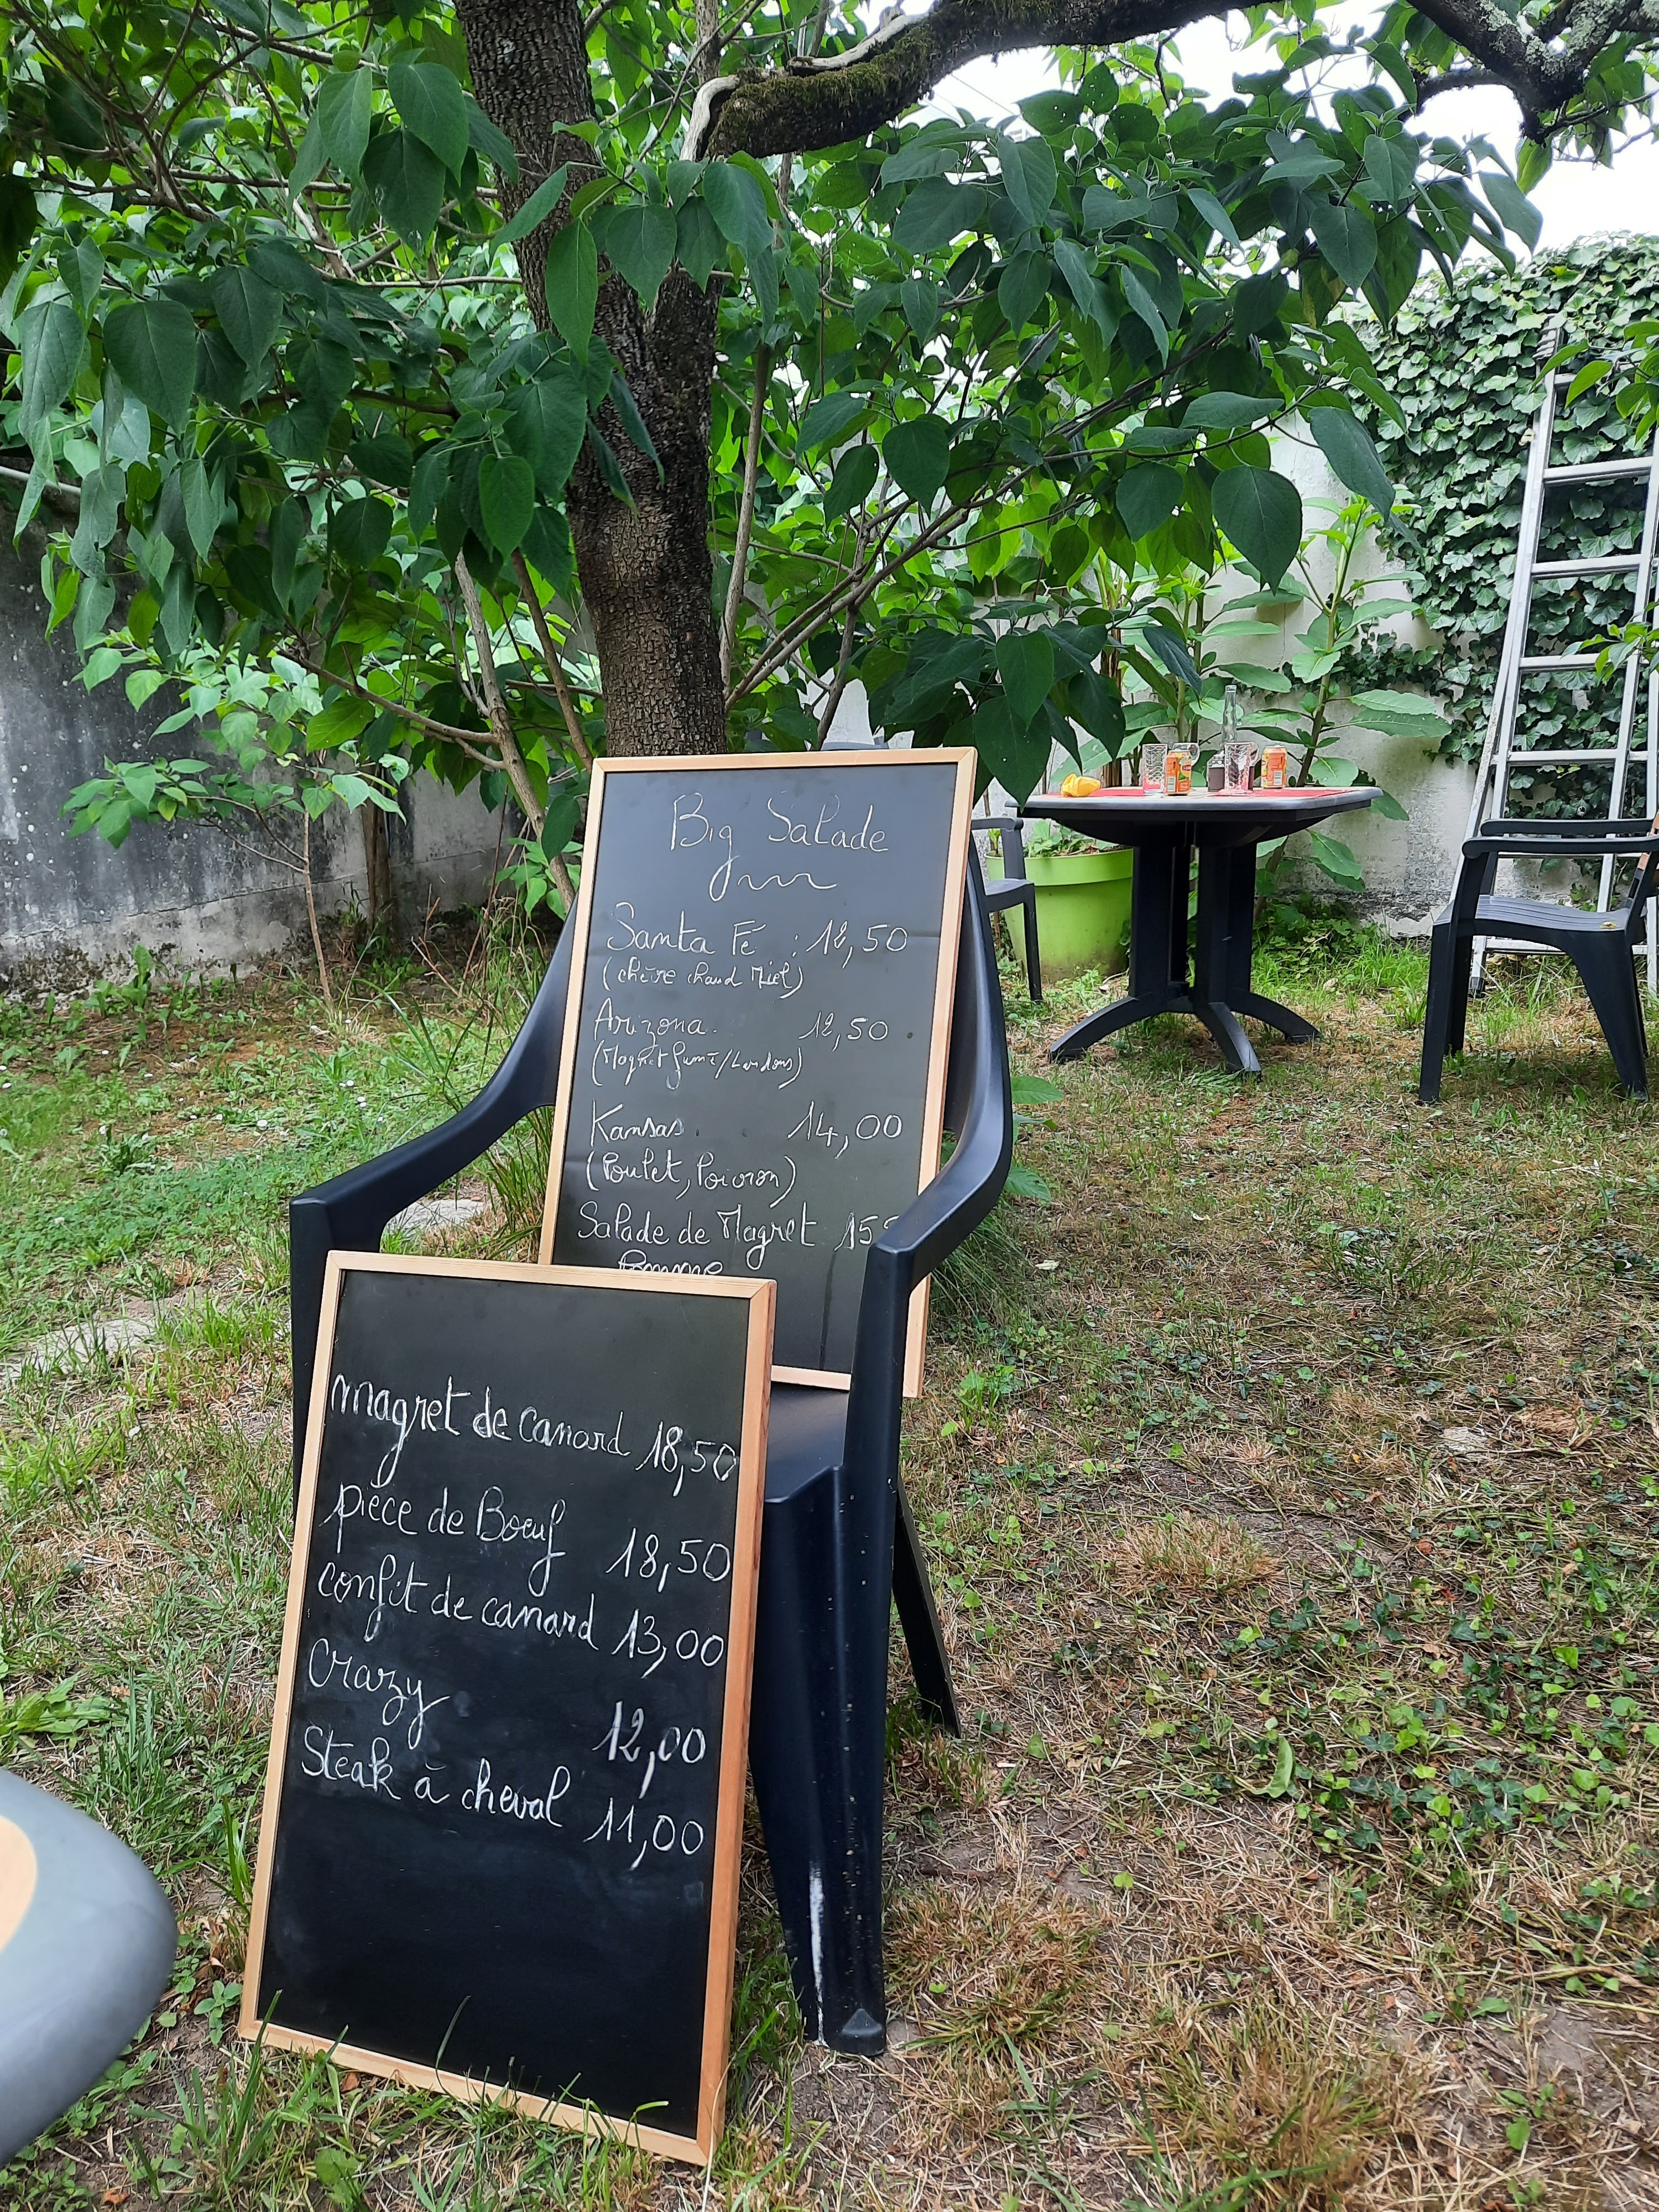 Big Salade
Santa Fé : 12,50
(chèvre chaud Miel)
Arizona. 12,50
(Magret fumé/Lardons)
Kansas 14,00
(Poulet, Poivron)
Salade de Magret 15
Pomme
magret de canard 18,50
pièce de Boeuf 18,50
confit de canard 13,00
Crazy 12,00
Steak à cheval 11,00